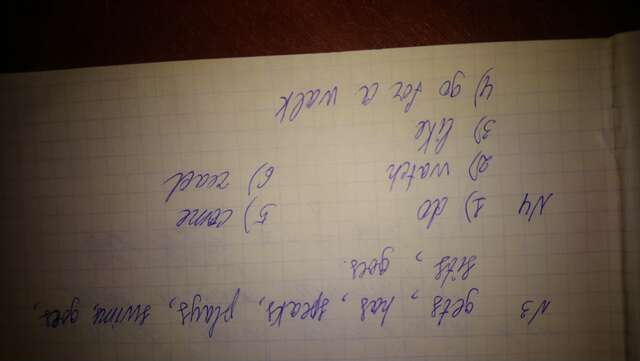 №3 gets, has, speaks, plays, swims, goes,
sits, goes.
№4 1) do 5) come
2) watch 6) read
3) like
4) go for a walk